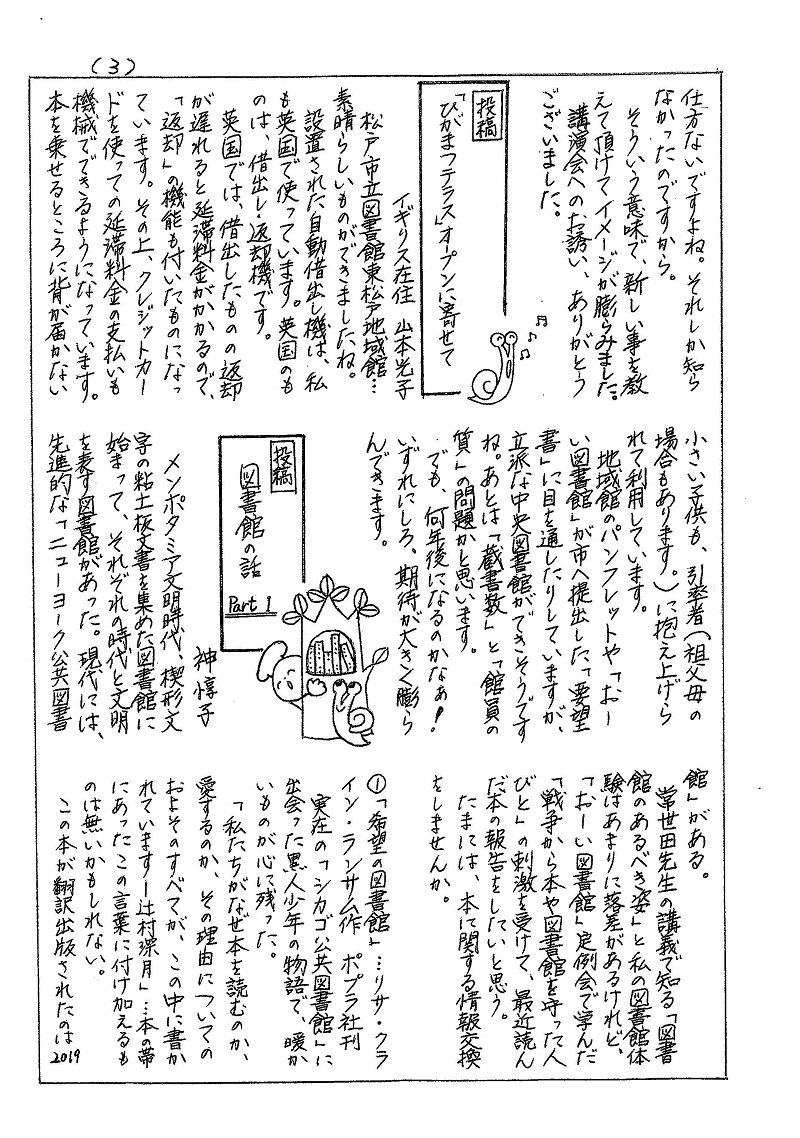 (3)
仕方ないですよね。それしか知ら
なかったのですから。
そういう意味で、新しい事を教
えて頂けてイメージが膨らみました。
講演会へのお誘い、ありがとう
ございました。
投稿
「ひがまつテラス」オープンに寄せて
イギリス在住 山本光子
松戸市立図書館東松戸地域館…
素晴らしいものができましたね。
設置された自動借出し機は、私
も英国で使っています。英国のも
のは、借出し・返却機です。
英国では、借出したものの返却
が遅れると延滞料金がかかるので、
「返却」の機能も付いたものになっ
ています。その上、クレジットカー
ドを使っての延滞料金の支払いも
機械でできるようになっています。
本を乗せるところに背が届かない
小さい子供も、引率者(祖父母の
場合もあります。)に抱え上げら
れて利用しています。
地域館のパンフレットや「おー
い図書館」が市へ提出した「要望
書」に目を通したりしていますが、
立派な中央図書館ができそうです
ね。あとは「蔵書数」と「館員の
質」の問題かと思います。
でも、何年後になるのかなぁ!
いずれにしろ、期待が大きく膨ら
んできます。
投稿
図書館の話
Part 1
神 惇子
メソポタミア文明時代、楔形文
字の粘土板文書を集めた図書館に
始まって、それぞれの時代と文明
を表す図書館があった。現代には、
先進的な「ニューヨーク公共図書
館」がある。
常世田先生の講義で知る「図書
館のあるべき姿」と私の図書館体
験はあまりに落差があるけれど、
「おーい図書館」定例会で学んだ
「戦争から本や図書館を守った人
びと」の刺激を受けて、最近読ん
だ本の報告をしたいと思う。
たまには、本に関する情報交換
をしませんか。
①「希望の図書館」…リサ・クラ
イン・ランサム作 ポプラ社刊
実在の「シカゴ公共図書館」に
出会った黒人少年の物語で、暖か
いものが心に残った。
「私たちがなぜ本を読むのか、
愛するのか、その理由についての
およそのすべてが、この中に書か
れていますー辻村深月」…本の帯
にあったこの言葉に付け加えるも
のは無いかもしれない。
この本が翻訳出版されたのは2019